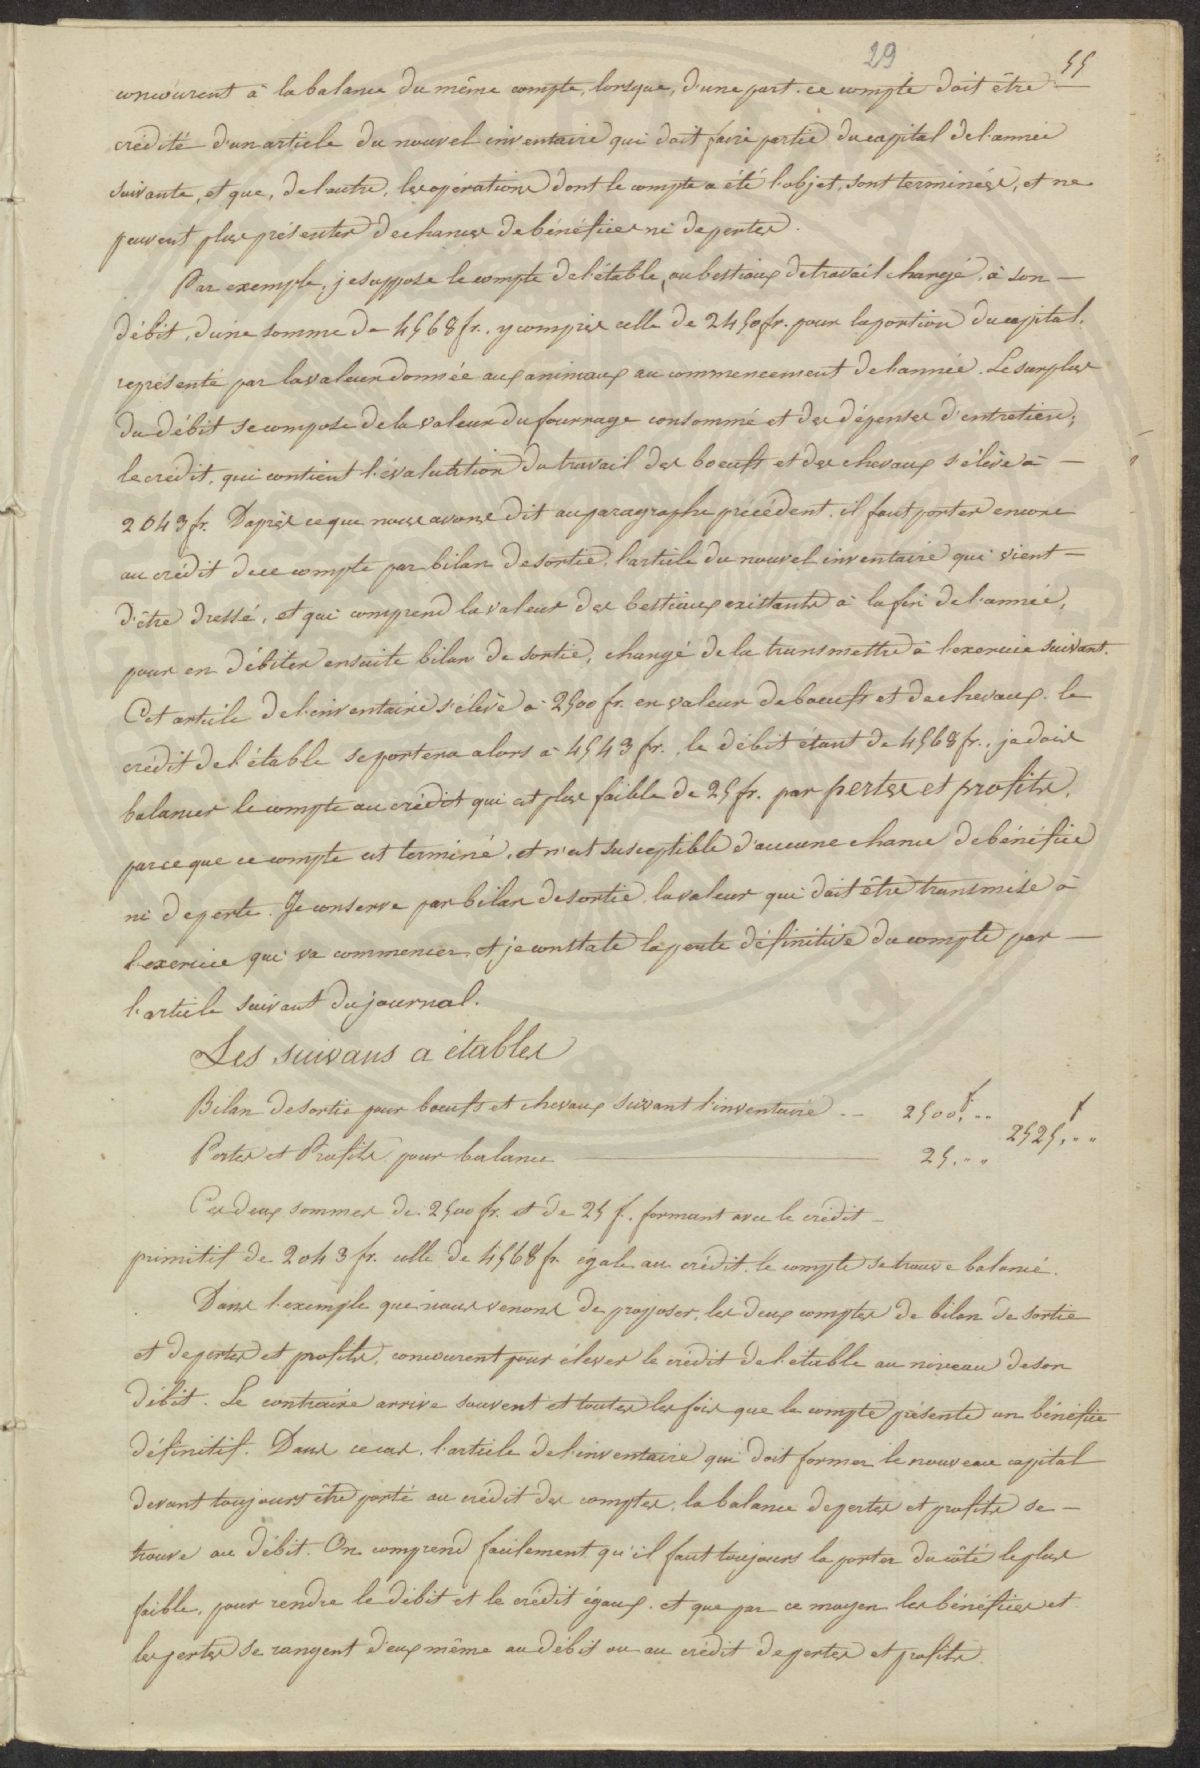 29
55
concourent à la balance du même compte, lorsque, d'une part, ce compte doit être —
crédité d'un article du nouvel inventaire qui doit faire partie du capital de l'année
suivante, et que, de l'autre, les opérations dont le compte a été l'objet, sont terminées, et ne
peuvent plus présenter de chances de bénéfices ni de pertes.
Par exemple, je suppose le compte de l'étable, ou bestiaux de travail chargé, à son —
débit, d'une somme de 4568 fr. y compris celle de 2450 fr. pour la portion du capital,
représenté par la valeur donnée aux animaux au commencement de l'année. Le surplus
du débit se compose de la valeur du fourrage consommé et des dépenses d'entretien;
le crédit, qui contient l'évaluation du travail des boeufs et des chevaux s'élève à —
2043 fr. D'après ce que nous avons dit au paragraphe précédent, il faut porter encore
au crédit de ce compte par bilan de sortie, l'article du nouvel inventaire qui vient —
d'être dressé, et qui comprend la valeur des bestiaux existants à la fin de l'année,
pour en débiter ensuite bilan de sortie, chargé de la transmettre à l'exercice suivant.
Cet article de l'inventaire s'élève à 2500 fr. en valeur de boeufs et de chevaux. le
crédit de l'étable se portera alors à 4543 fr. le débit étant de 4568 fr., je dois
balancer le compte au crédit qui est plus faible de 25 fr. par pertes et profits,
parce que ce compte est terminé, et n'est susceptible d'aucune chance de bénéfice
ni de perte. Je conserve par bilan de sortie, la valeur qui doit être transmise à
l'exercice qui va commencer et je constate la perte définitive du compte par —
l'article suivant du journal.
Les suivans a étables
Bilan de sortie pour boeufs et chevaux suivant l'inventaire .— 2500,f ..
2525,f ..
Pertes et Profits pour balance — 25, ..
Ces deux sommes de 2500 fr. et de 25 f. formant avec le crédit —
primitif de 2043 fr. celle de 4568 fr. égale au crédit, le compte se trouve balancé.
Dans l'exemple que nous venons de proposer, les deux comptes de bilan de sortie
et de pertes et profits, concourent pour élever le crédit de l'étable au niveau de son
débit. Le contraire arrive souvent et toutes les fois que le compte présente un bénéfice
définitif. Dans ce cas, l'article de l'inventaire qui doit former le nouveau capital
devant toujours être porté au crédit des comptes, la balance de pertes et profits se —
trouve au débit. On comprend facilement qu'il faut toujours la porter du côté le plus
faible, pour rendre le débit et le crédit égaux, et que par ce moyen les bénéfices et
les pertes se rangent d'eux même au débit ou au crédit de pertes et profits.